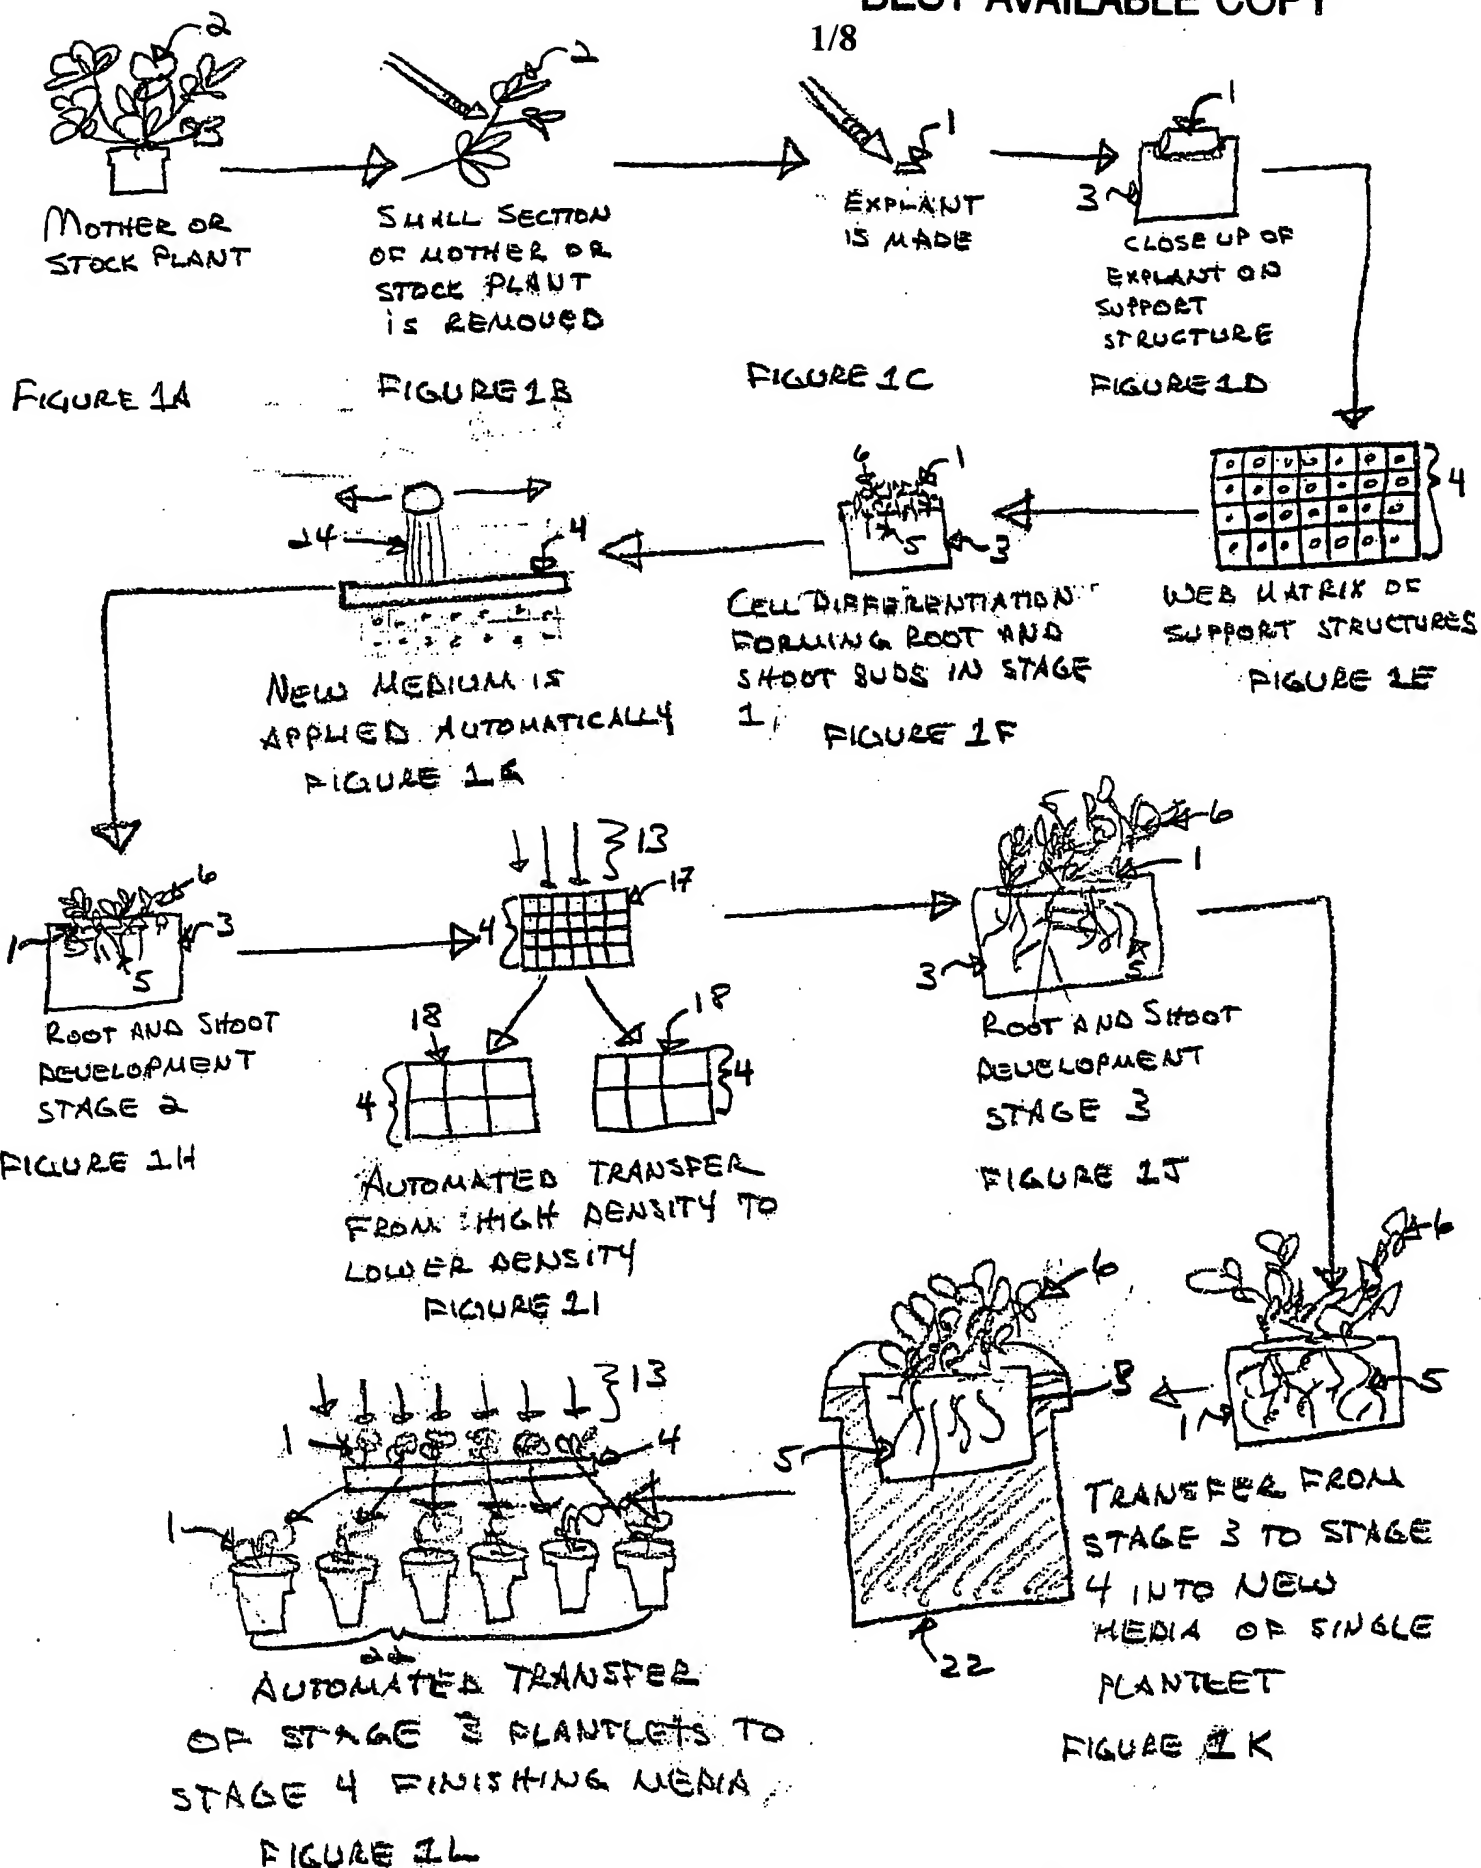 BEST AVAILABLE COPY
1/8
2
MOTHER OR
STOCK PLANT
FIGURE 1A
2
SMALL SECTION
OF MOTHER OR
STOCK PLANT
IS REMOVED
FIGURE 1B
1
EXPLANT
IS MADE
FIGURE 1C
1
3
CLOSE UP OF
EXPLANT ON
SUPPORT
STRUCTURE
FIGURE 1D
4
WEB MATRIX OF
SUPPORT STRUCTURES
FIGURE 1E
6
1
5
3
CELL DIFFERENTIATION
FORMING ROOT AND
SHOOT BUDS IN STAGE
1,
FIGURE 1F
24
4
NEW MEDIUM IS
APPLIED AUTOMATICALLY
FIGURE 1G
6
1
3
5
ROOT AND SHOOT
DEVELOPMENT
STAGE 2
FIGURE 1H
13
17
4
18
18
4
4
AUTOMATED TRANSFER
FROM HIGH DENSITY TO
LOWER DENSITY
FIGURE 1I
6
1
3
5
ROOT AND SHOOT
DEVELOPMENT
STAGE 3
FIGURE 1J
6
5
1
6
3
5
22
TRANSFER FROM
STAGE 3 TO STAGE
4 INTO NEW
MEDIA OF SINGLE
PLANTLET
FIGURE 1K
13
1
4
1
22
AUTOMATED TRANSFER
OF STAGE 3 PLANTLETS TO
STAGE 4 FINISHING MEDIA
FIGURE 1L